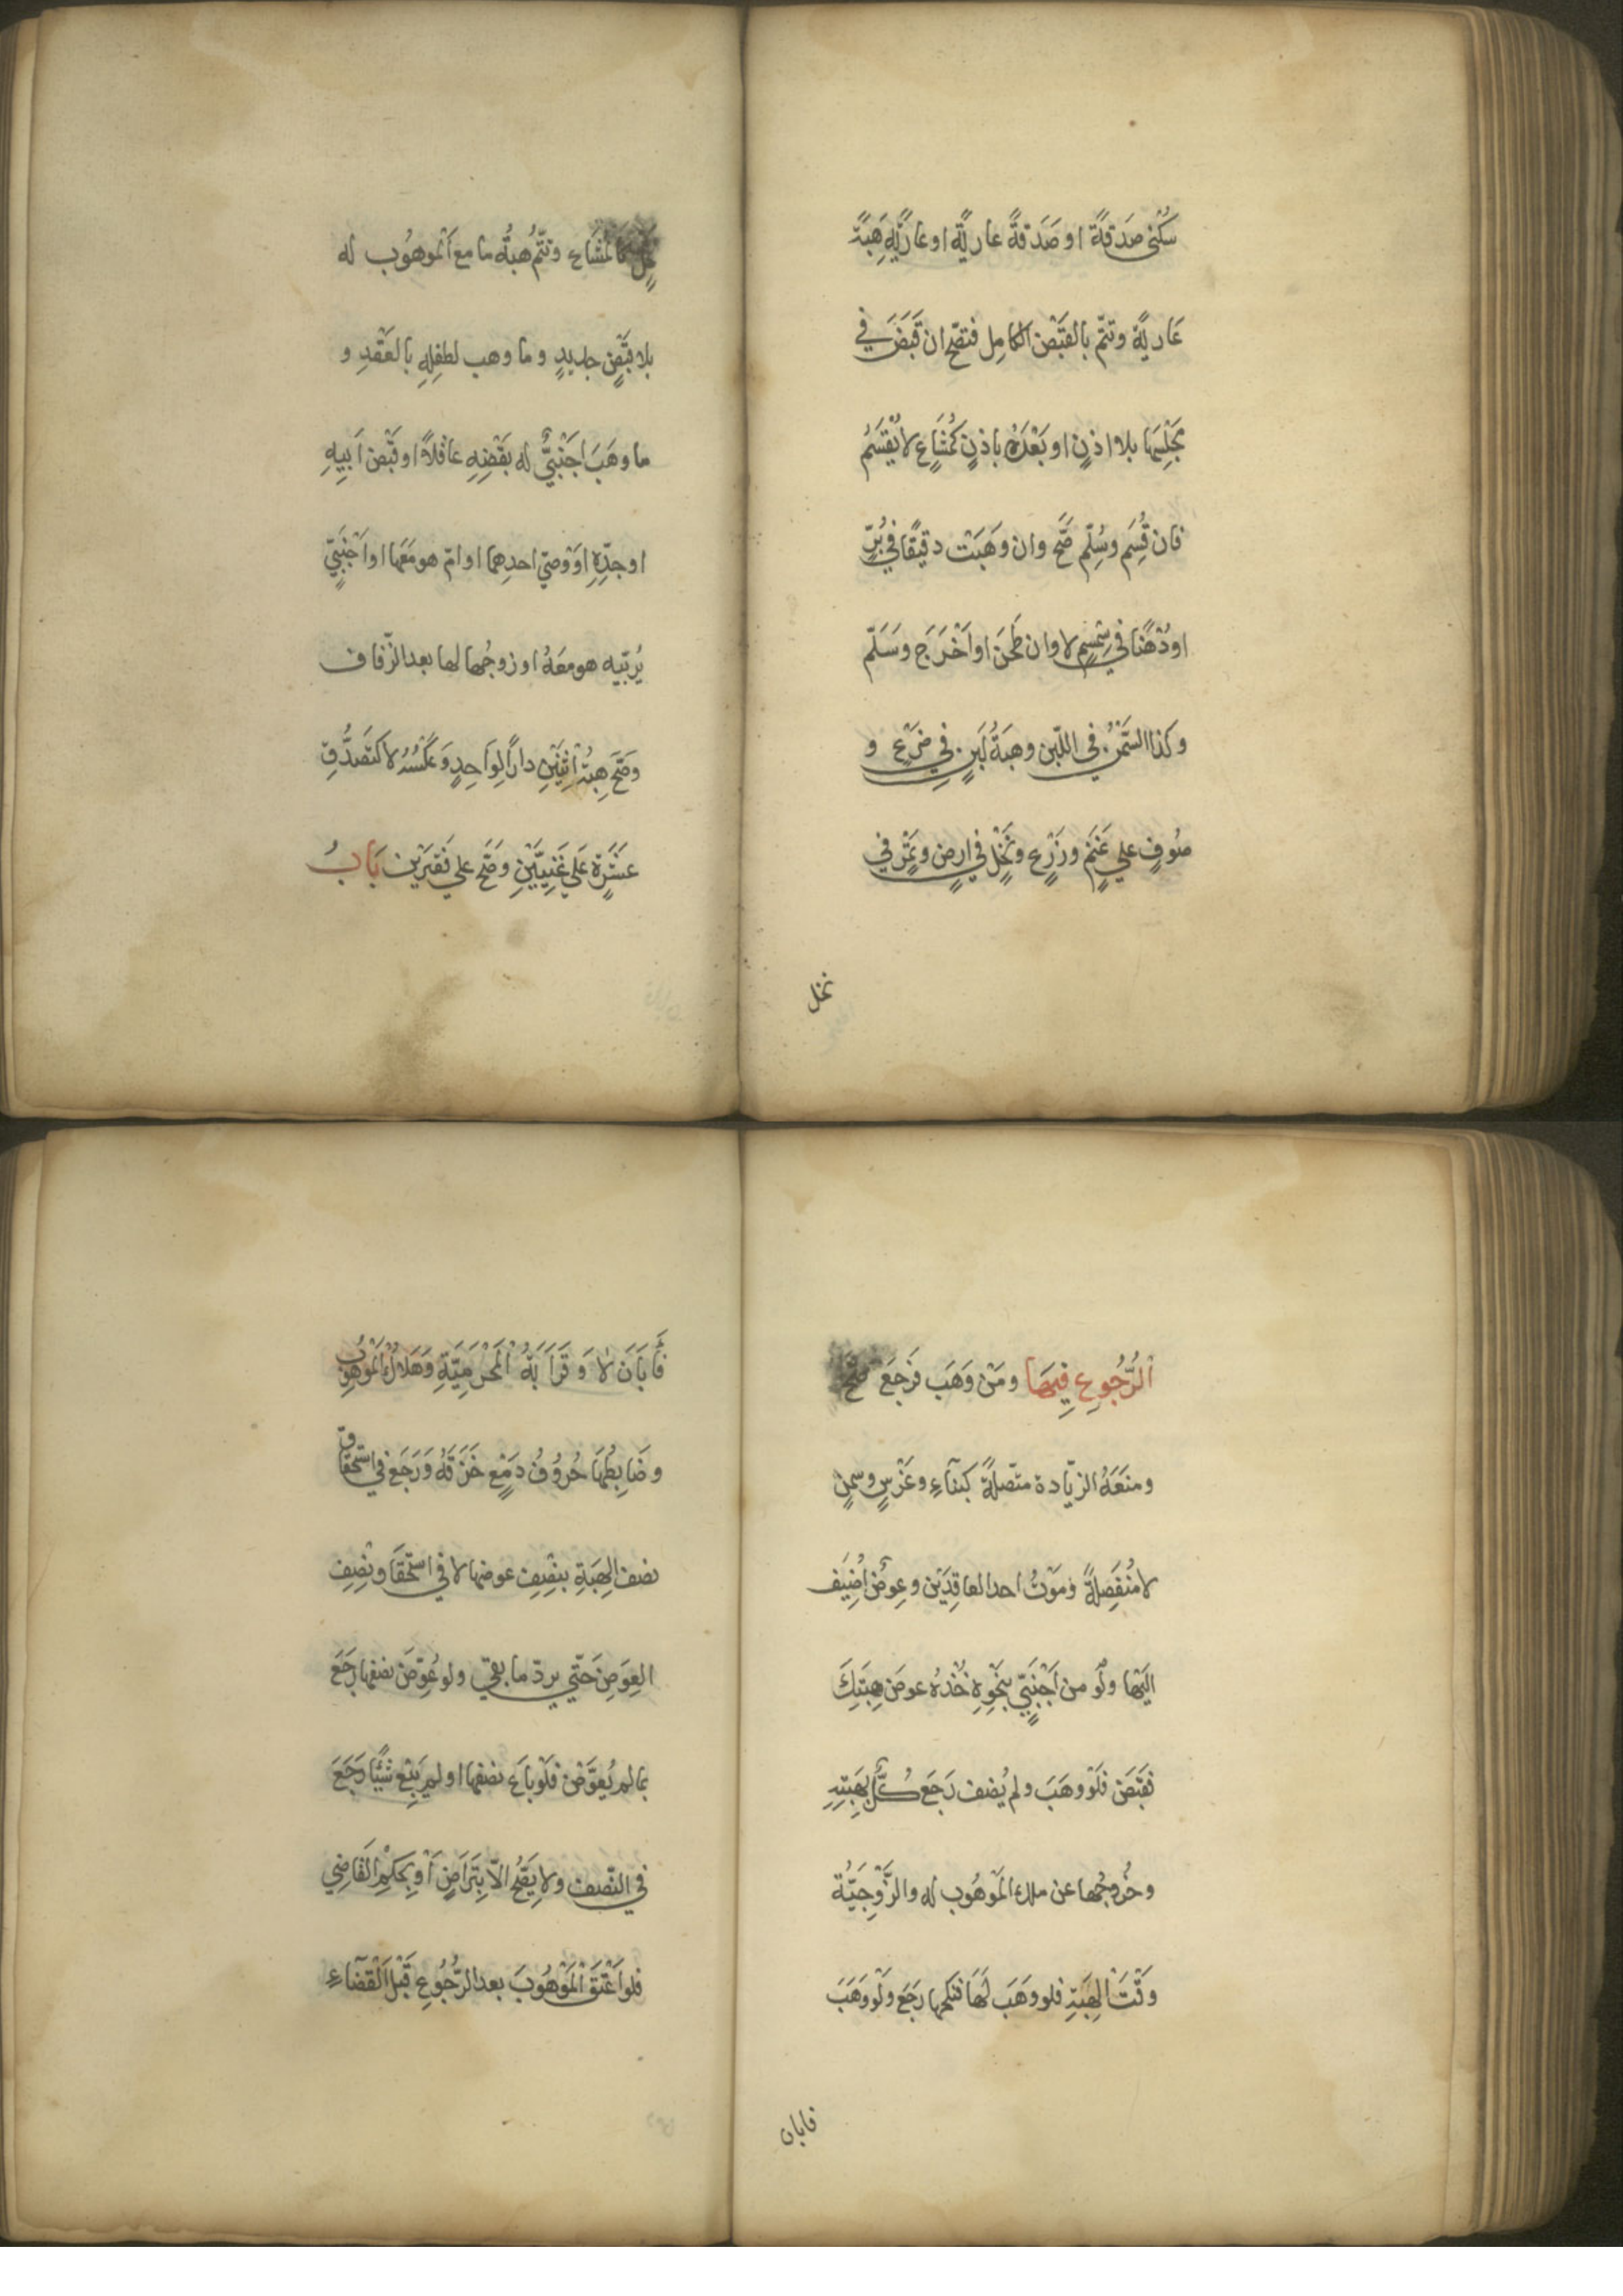 سُكْنى صَدَقةً او صَدَقةً عاريّةً او عاريّةً هِبَةً
عَاريةً وتتمّ بالقَبْض الكامِل فتصحّ ان قَبَضَ في
مَجْلِسِها بلا اذنٍ او بَعْدَهُ باذنٍ كمُشَاعٍ لا يُقْسَمُ
فان قُسِم وسُلِّم صَحَّ وان وَهَبَتْ دقيقًا في بُرٍّ
او دُهْنًا في سِمْسِمٍ لا وان طَحَنَ او اَخْرَجَ وسَلَّم
وكذا السَّمْنُ في اللّبن وهِبَةُ لَبَنٍ في ضَرْعٍ و
صُوفٍ علي غَنَمٍ وزَرْعٍ ونَخْلٍ في ارضٍ وتَمْرٍ في
نخل
نَخْلٍ كالمُشَاعِ وتتّمُ هبةُ ما مع المَوهُوب له
بلا قَبْضٍ جديدٍ وما وهب لطفلِهِ بالعَقْدِ و
ما وهَبَ اَجْنَبيٌّ له بقَبْضِهِ عاقلاً او قَبْض اَبيهِ
او جدِّهِ اوْ وصيّ احدِهما او امّ هو مَعَها او اَجْنَبيٍّ
يُربّيه هو معَهُ او زوجُها لها بعد الزّفاف
وَصَحَّ هِبةُ اثنَيْنِ دارًا لِواَحِدٍ وَعَكْسُهُ لا كتَصَدُّقِ
عشَرةٍ عَلَي غَنِيَّيْنِ وصَحَّ علي فقيرَيْن بَابُ
الرُّجُوعِ فِيهَا ومَنْ وَهَب فرَجَعَ صَحَّ
ومنَعَهُ الزّيادة متّصلةً كبنَآءٍ وغَرْسٍ وسِمَنٍ
لا مُنْفَصِلةً وَمَوْتُ احد العاقِدَيْن وعِوَضٌ اُضِيْف
الَيْها ولَوْ من اَجْنَبيٍّ بنَحْوِ خُذْهُ عوضَ هِبَتِكَ
فقَبَضَ فلَوْ وهَبَ ولم يُضف رَجَعَ كُلٌّ بهِبَتِهِ
وخُروجُها عن ملك المَوْهُوب له والزَّوْجِيّةُ
وَقْتَ الهِبَةِ فلو وهَبَ لهَا فنكحها رجَع ولَوْ وهَبَ
فابان
فَاَبَانَ لا وَقَرَابَةُ المَحْرَمِيّةِ وَهَلاَكُ المَوْهُوبِ
وضَابِطُهَا حُرُوُفُ دَمْعٍ خَزَقَهُ وَرَجَع في استحقَاق
نصف الهِبَةِ بنِصْفِ عوضها لا في استحقَاق نِصْفِ
العِوَضِ حَتّي يردّ ما بقي ولو عُوِّضَ نصفها رجَعَ
بما لم يُعوَّض فلَوْ باَع نصفها او لم يَبِعْ شيْئًا رَجَعَ
في النّصف ولا يَصِحُّ الاّ بتَرَاضٍ اَوْ بحُكْمِ القَاضِي
فلو اَعْتَقَ المَوْهُوبَ بعد الرُّجُوُعِ قَبْل القَضَآءِ